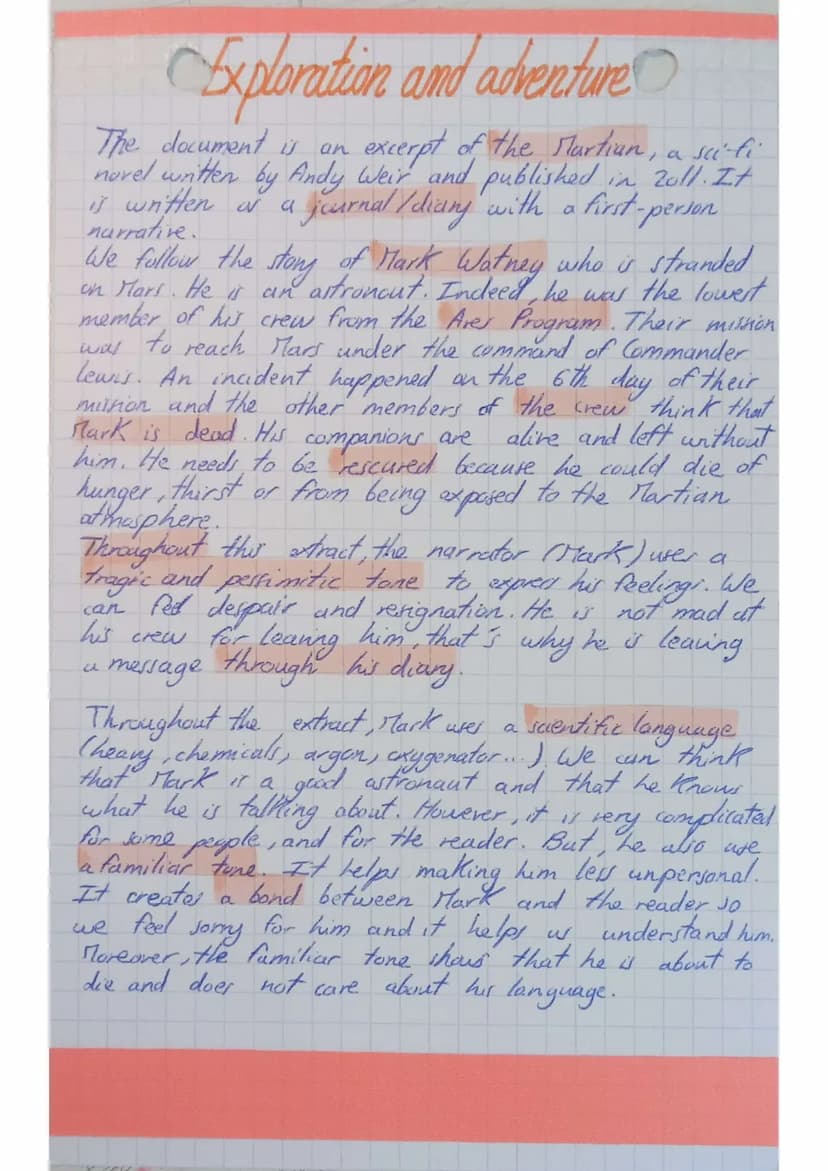 Exploration and adventure
The document is an excerpt of the Martian, a sci-fi
novel written by Andy Weir and published in 2011. It
is written as a journal/diary with a first-person
narrative.
We follow the story of Mark Watney who is stranded
on Mars. He is an astronaut. Indeed, he was the lowest
member of his crew from the Ares Program. Their mission
was to reach Mars under the command of Commander
Lewis. An incident happened on the 6th day of their
mission and the other members of the crew think that
Mark is dead. His companions are alive and left without
him. He needs to be rescured because he could die of
hunger, thirst or from being exposed to the Martian
atmosphere.
Throughout this extract, the narrator (Mark) uses a
tragic and pessimitic tone to express his feelings. We
can feel despair and resignation. He is not mad at
his crew for leaving him, that's why he is leaving
a message through his diary.
Throughout the extract, Mark uses a scientific language
(heavy, chemicals, argon, oxygenator...). We can think
that Mark is a good astronaut and that he knows
what he is talking about. However, it is very complicated
for some people, and for the reader. But, he also use
a familiar tone. It helps making him less unpersonal.
It creates a bond between Mark and the reader so
we feel sorry for him and it helps us understand him.
Moreover, the familiar tone shows that he is about to
die and does not care about his language.